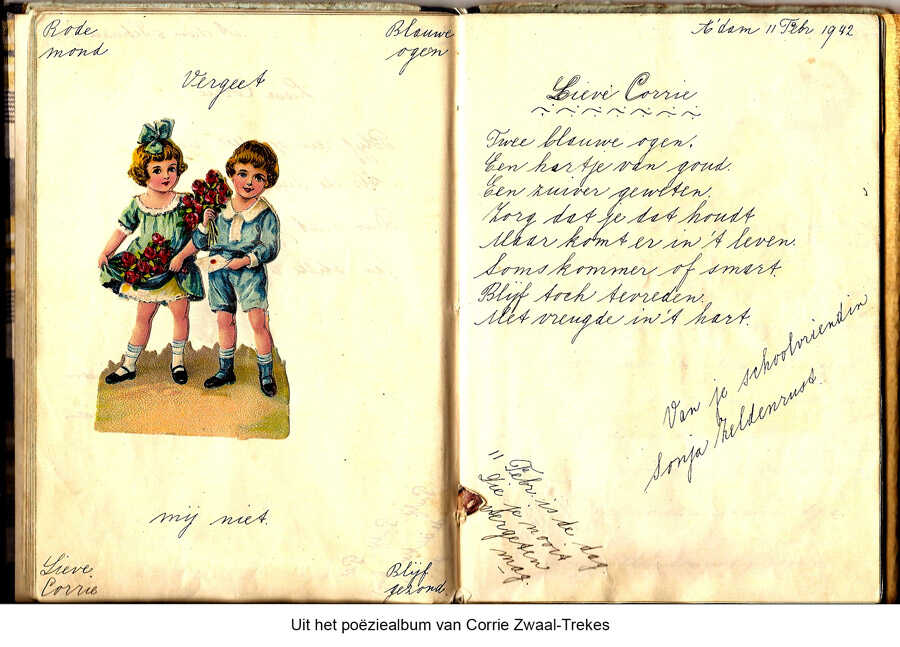 Rode
mond
Blauwe
ogen
Vergeet
mij niet.
Lieve
Corrie
Blijf
gezond.
A'dam 11 Febr 1942
Lieve Corrie
Twee blauwe ogen.
Een hartje van goud.
Een zuiver geweten.
Zorg dat je dat houdt
Maar komt er in 't leven.
Soms kommer of smart.
Blijf toch tevreden.
Met vreugde in 't hart.
Van je schoolvriendin
Sonja Zeldenrust.
11 Febr is de dag
Die je nooit
vergeten
mag.
Uit het poëziealbum van Corrie Zwaal-Trekes